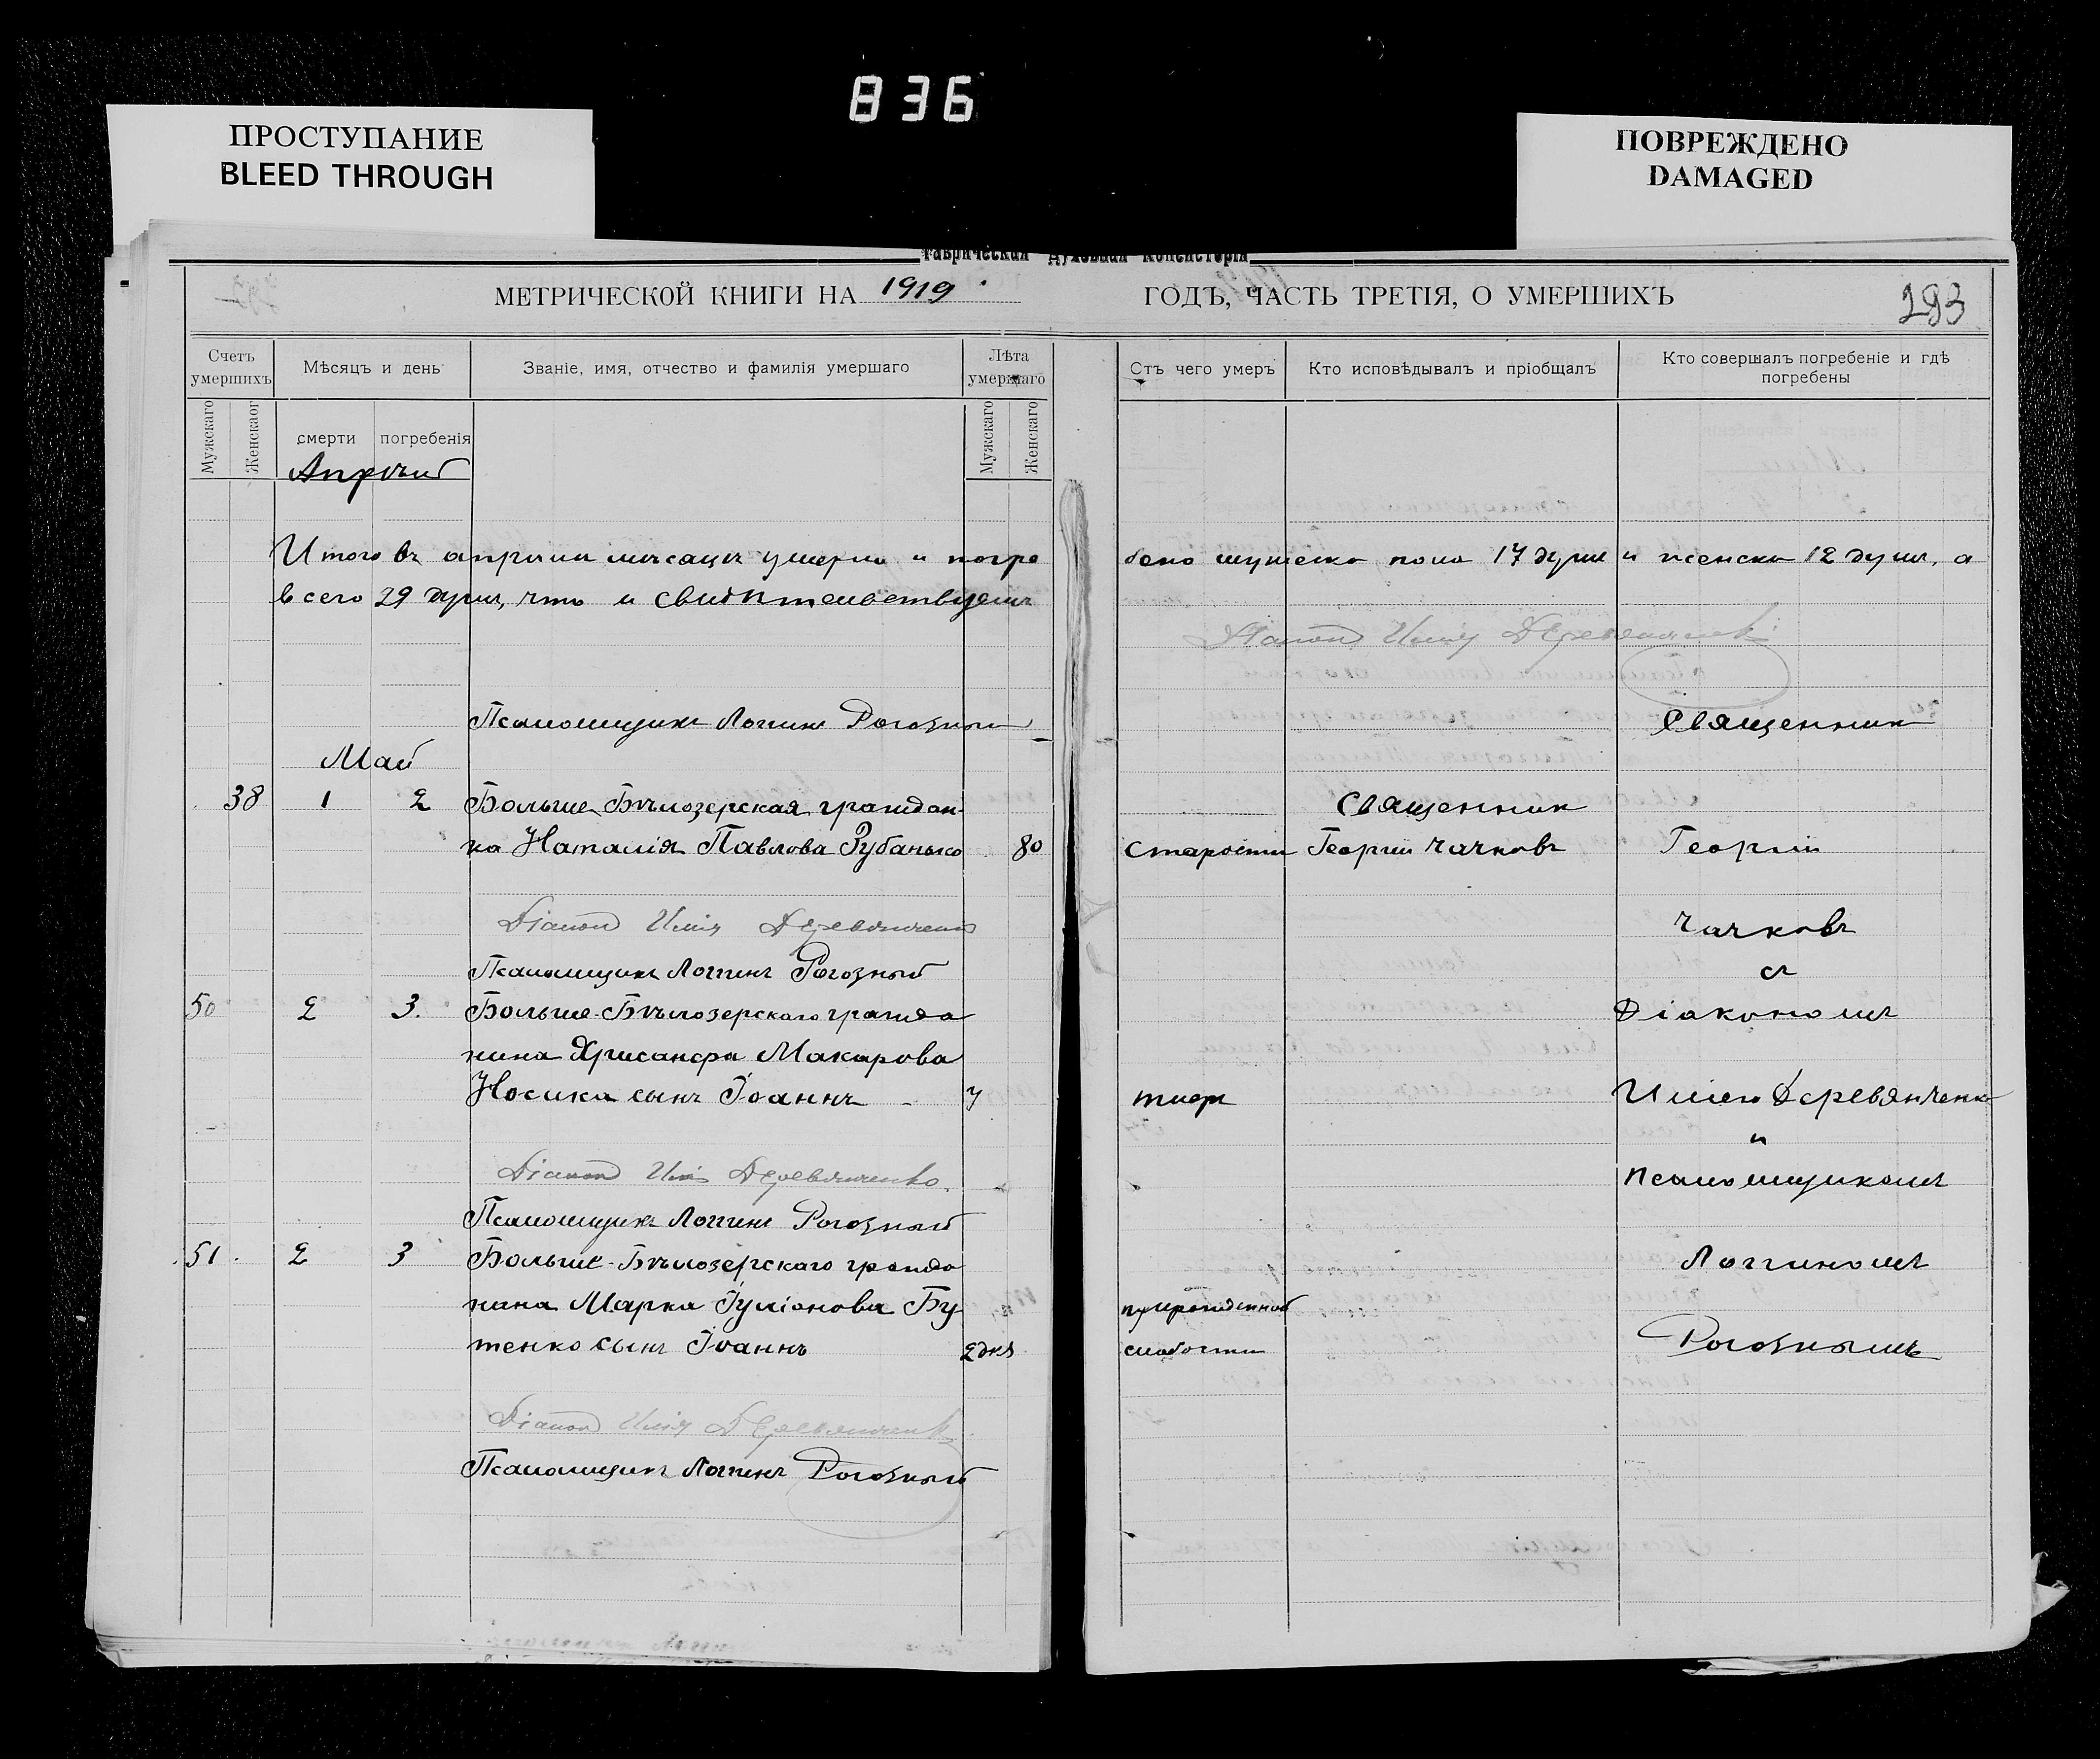 836
ПРОСТУПАНИЕ
BLEED THROUGH
ПОВРЕЖДЕНО
DAMAGED
Таврическая Духовная Консисторія
МЕТРИЧЕСКОЙ КНИГИ НА 1919 ГОДЪ, ЧАСТЬ ТРЕТІЯ, О УМЕРШИХЪ
293
Счетъ умершихъ
Мѣсяцъ и день
Званіе, имя, отчество и фамилія умершаго
Лѣта умершаго
Стъ чего умеръ
Кто исповѣдывалъ и пріобщалъ
Кто совершалъ погребеніе и гдѣ погребены
Мужскаго
Женскаог
смерти
погребенія
Мужскаго
Женскаго
Апрѣль
Итого въ апрѣлѣ мѣсяцѣ умерло и погре бено мужеска пола 17 душ и женска 12 душ, а
всего 29 душ, что и свидѣтельствуемъ
Діаконъ Илія Деревянченко
Псаломщикъ Логгинъ Рогозный
Священник
Май
38 1 2 Больше-Бѣлозерская граждан- Священник
ка Наталія Павлова Зубанько 80 старости Георгій Чачковъ Георгій
Діаконъ Илія Деревянченко Чачковъ
Псаломщикъ Логгинъ Рогозный съ
50 2 3. Больше-Бѣлозерскаго гражда Діакономъ
нина Хрисанфа Макарова
Носика сынъ Іоаннъ 7 тифъ Иліею Деревянченко
и
Діаконъ Илія Деревянченко. псаломщикомъ
Псаломщикъ Логгинъ Рогозный
51 2 3 Больше-Бѣлозерскаго гражда Логгиномъ
нина Марка Іуліанова Бу-
тенко сынъ Іоаннъ 2 дня слабости Рогознымъ
Діаконъ Илія Деревянченко
Псаломщикъ Логгинъ Рогозный